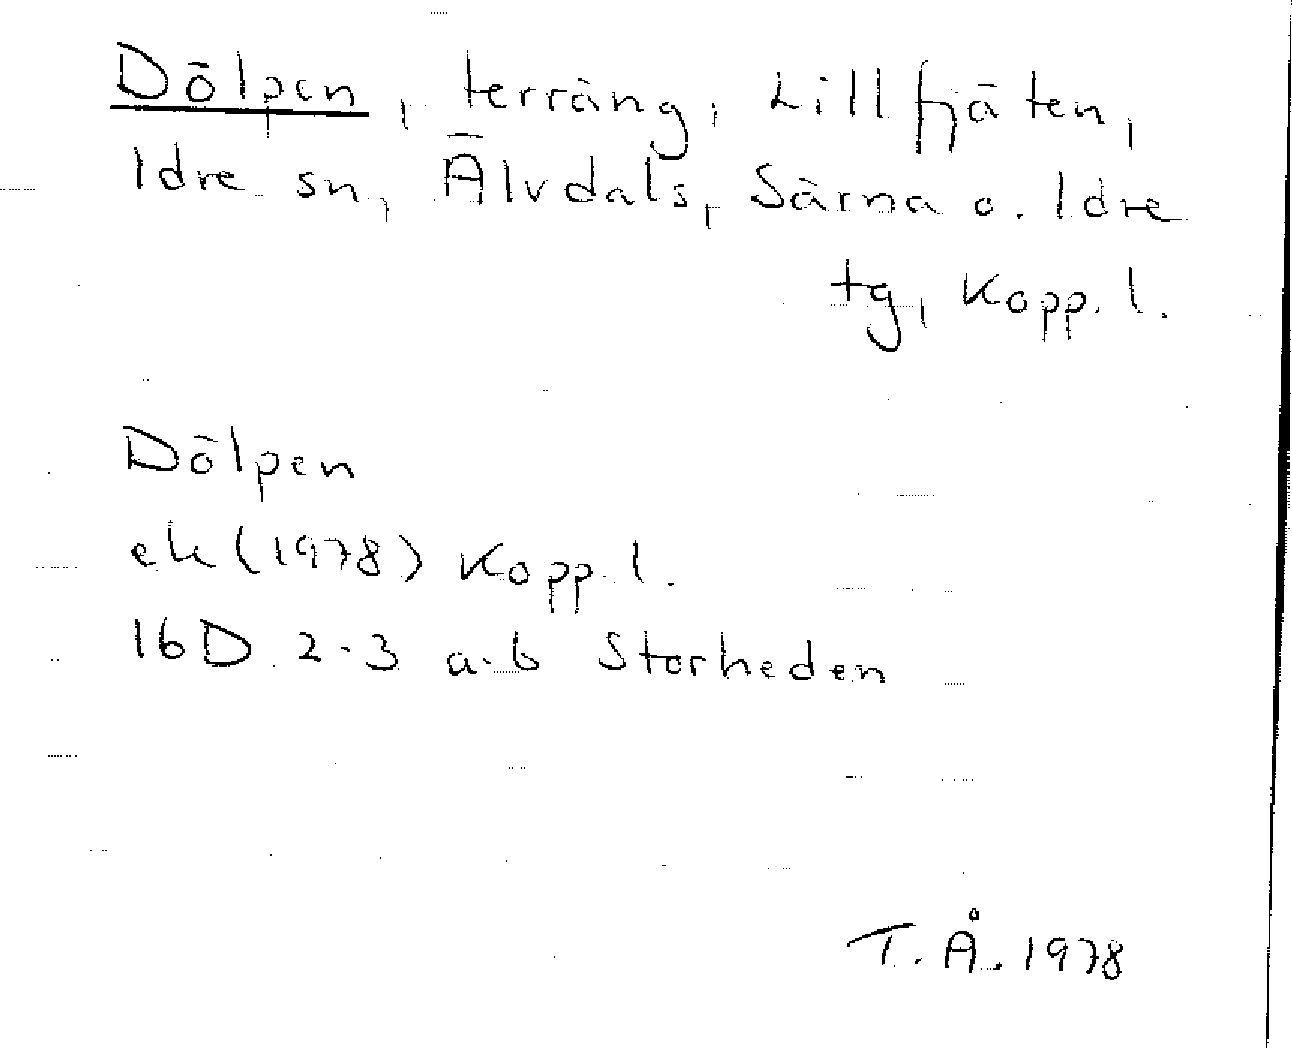 Dölpen, terräng, Lillfjäten,
Idre sn, Älvdals, Särna o. Idre
tg, Kopp. l.
Dölpen
ek (1978) Kopp. l.
16D 2-3 a-b Storheden
T. Å. 1978